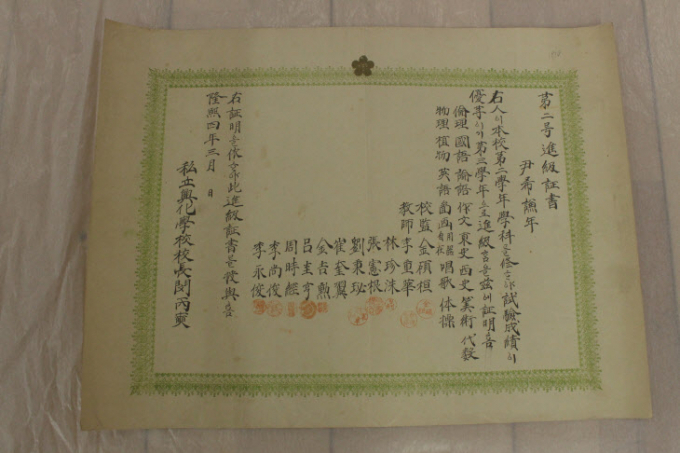 第二号進級証書
尹希謙 年
右人이本校第二學年學科를修하야試驗成績이
優等이기第三學年으로進級함을玆에証明함
倫理 國語 論語 作文 東史 西史 算術 代數
物理 植物 英語 圖画 唱歌 体操
校監 金碩桓
教師 李重華
林珍洙
張憲根
劉秉珌
崔奎翼
金吉勲
呂圭亨
周時經
李尚俊
李永俊
右証明을依하야此進級証書를發與함
隆熙四年三月 日
私立興化學校校長閔丙奭